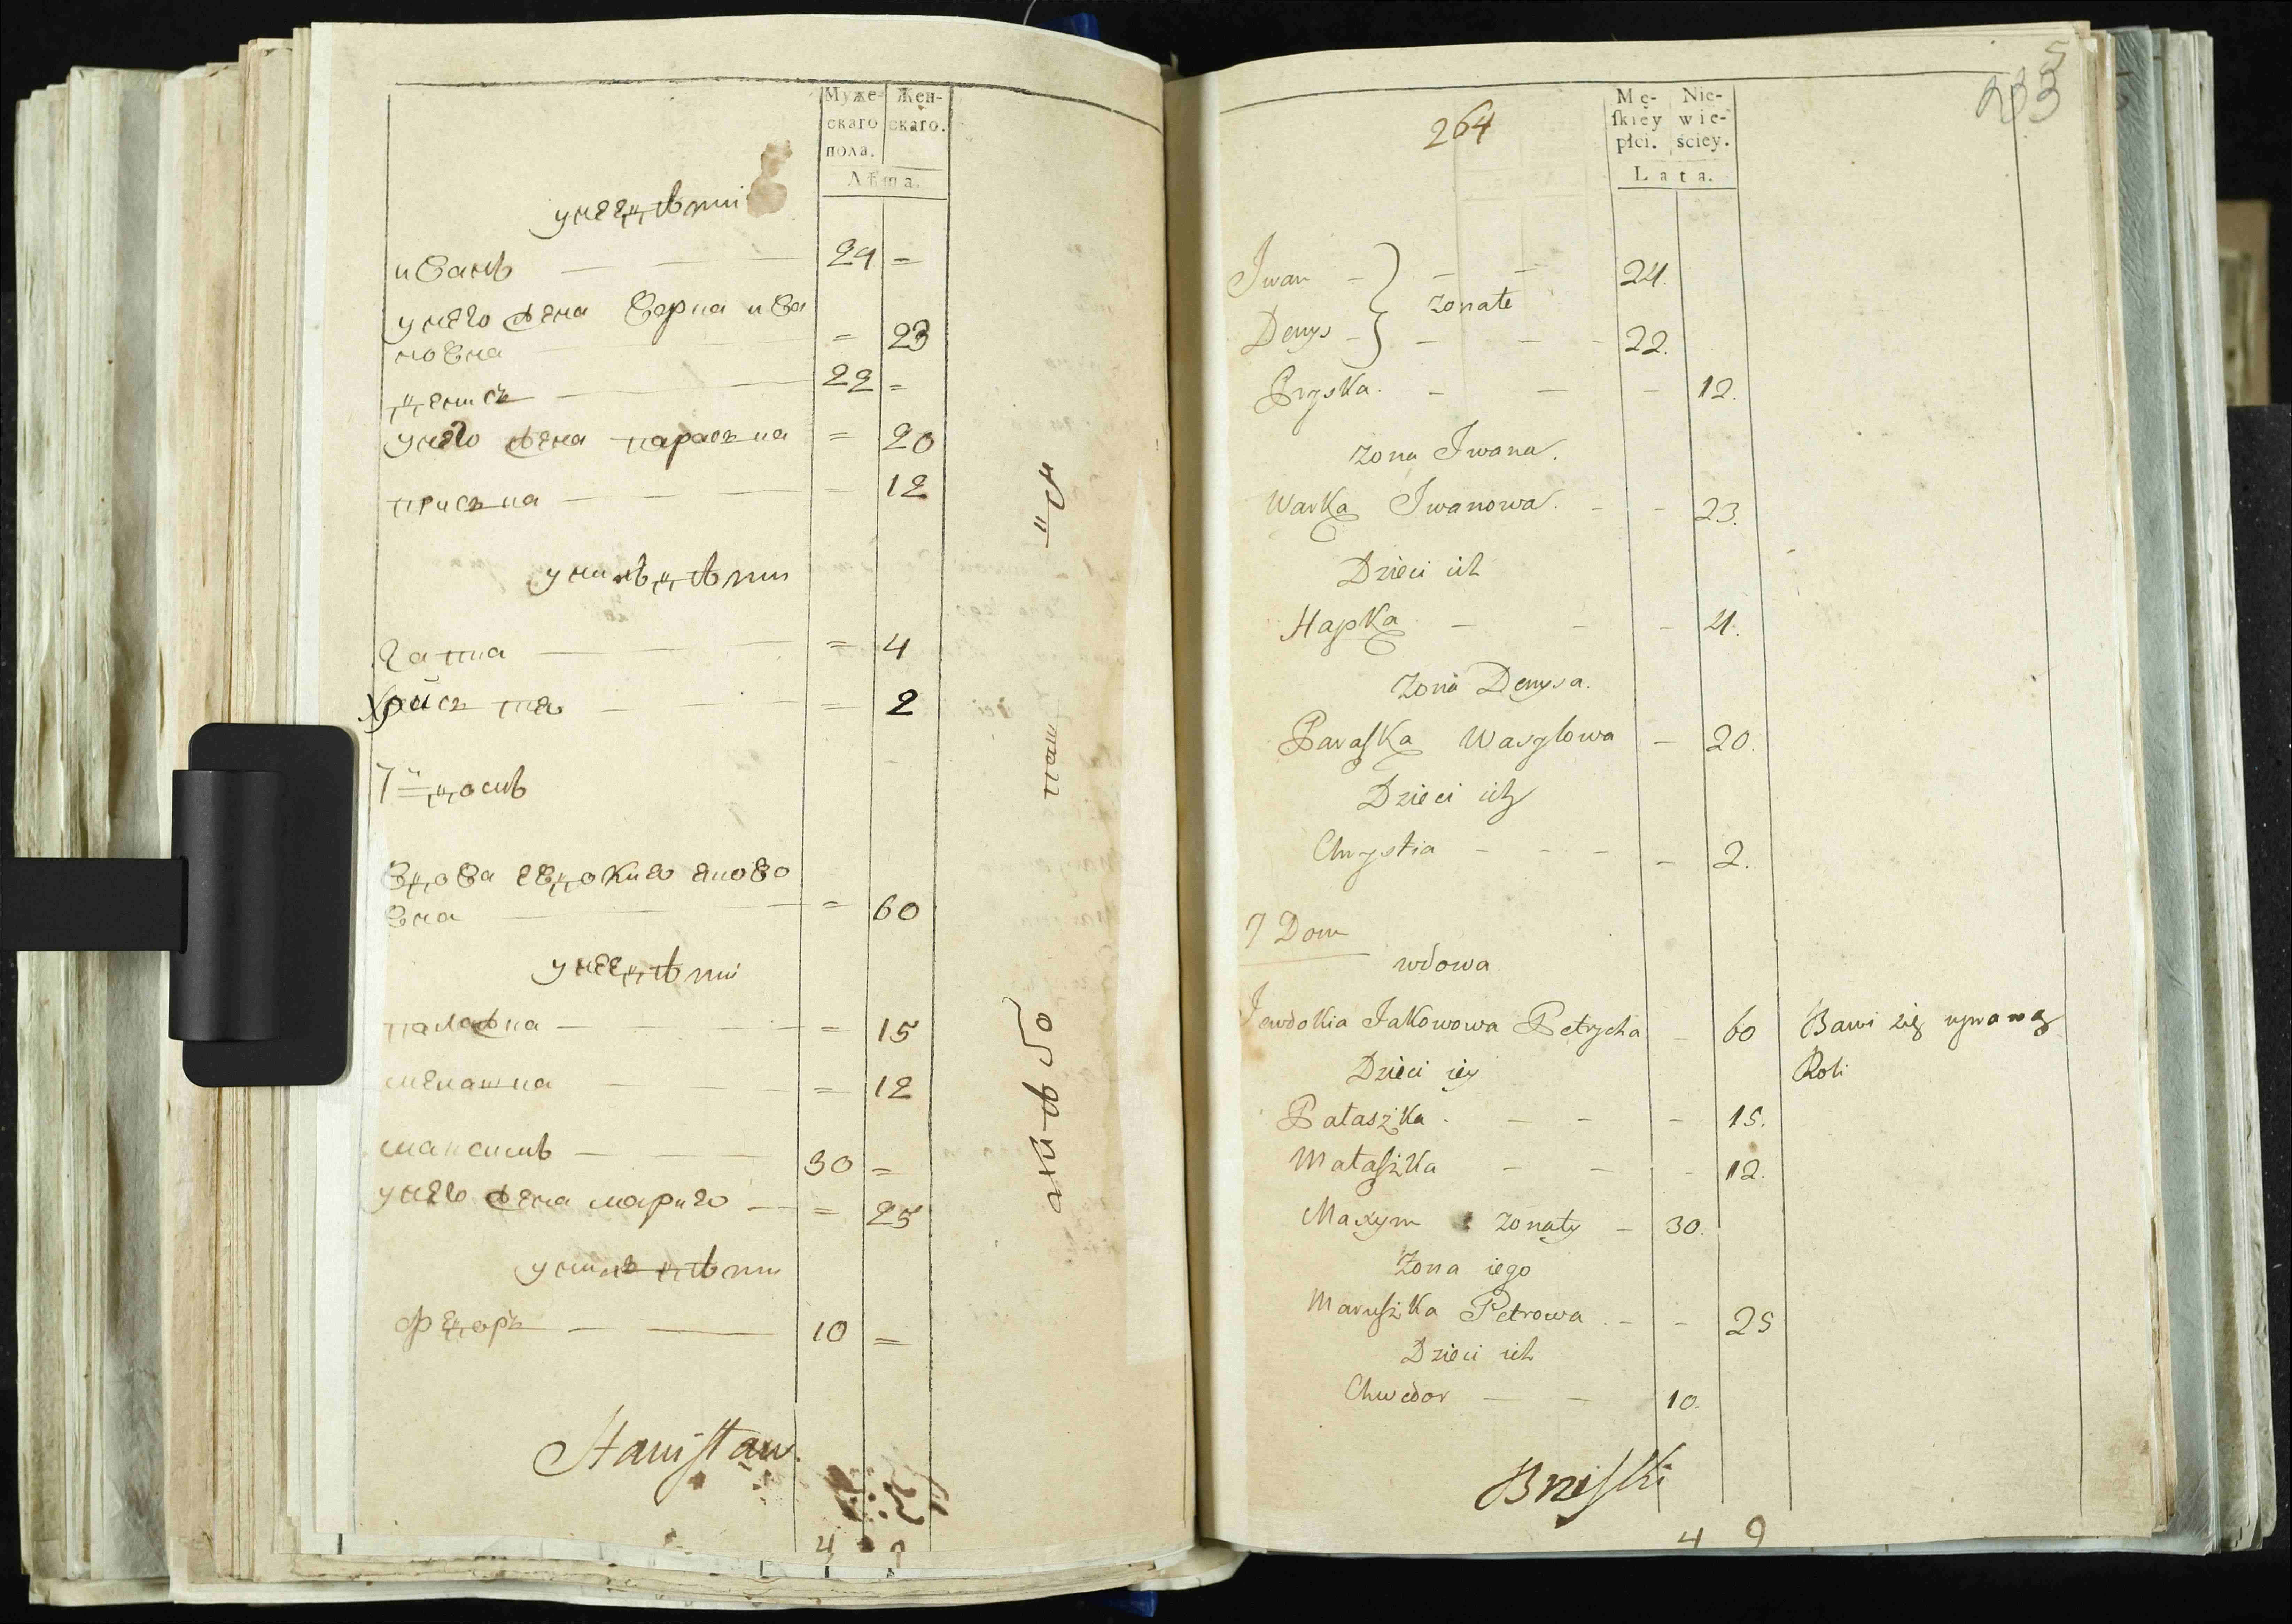 Муже-
скаго
пола.
Жен-
скаго.
Лѣта.
у нее дѣти
иванъ 24 =
у него жена варка ива
новна = 23
денисъ 22 =
у него жена параска = 20
приска = 12
у нихъ дѣти
гапка = 4
христя = 2
7й домъ
вдова евдокия яково
вна = 60
у нее дѣти
палажка = 15
малашка = 12
максимъ 30 =
у него жена мария = 25
у нихъ дѣти
федоръ 10 =
Stanisław
4 9
264
Mę-
skiey
płci.
Nie-
wie-
ściey.
Lata.
Iwan } żonate 24.
Denys 22.
Pryska. 12.
Zona Iwana.
Warka Iwanowa. 23.
Dzieci ich
Hapka 4.
Zona Denysa.
Paraska Wasylowa 20.
Dzieci ich
Chrystia 2.
7 Dom
wdowa
Jewdokia Jakowowa Petrycha 60 Bawi się uprawą
Roli
Dzieci iey
Pałaszka 15.
Małaszka 12.
Maxym żonaty 30.
Zona iego
Maruszka Petrowa 25
Dzieci ich
Chwedor 10.
Brzeski
4 9